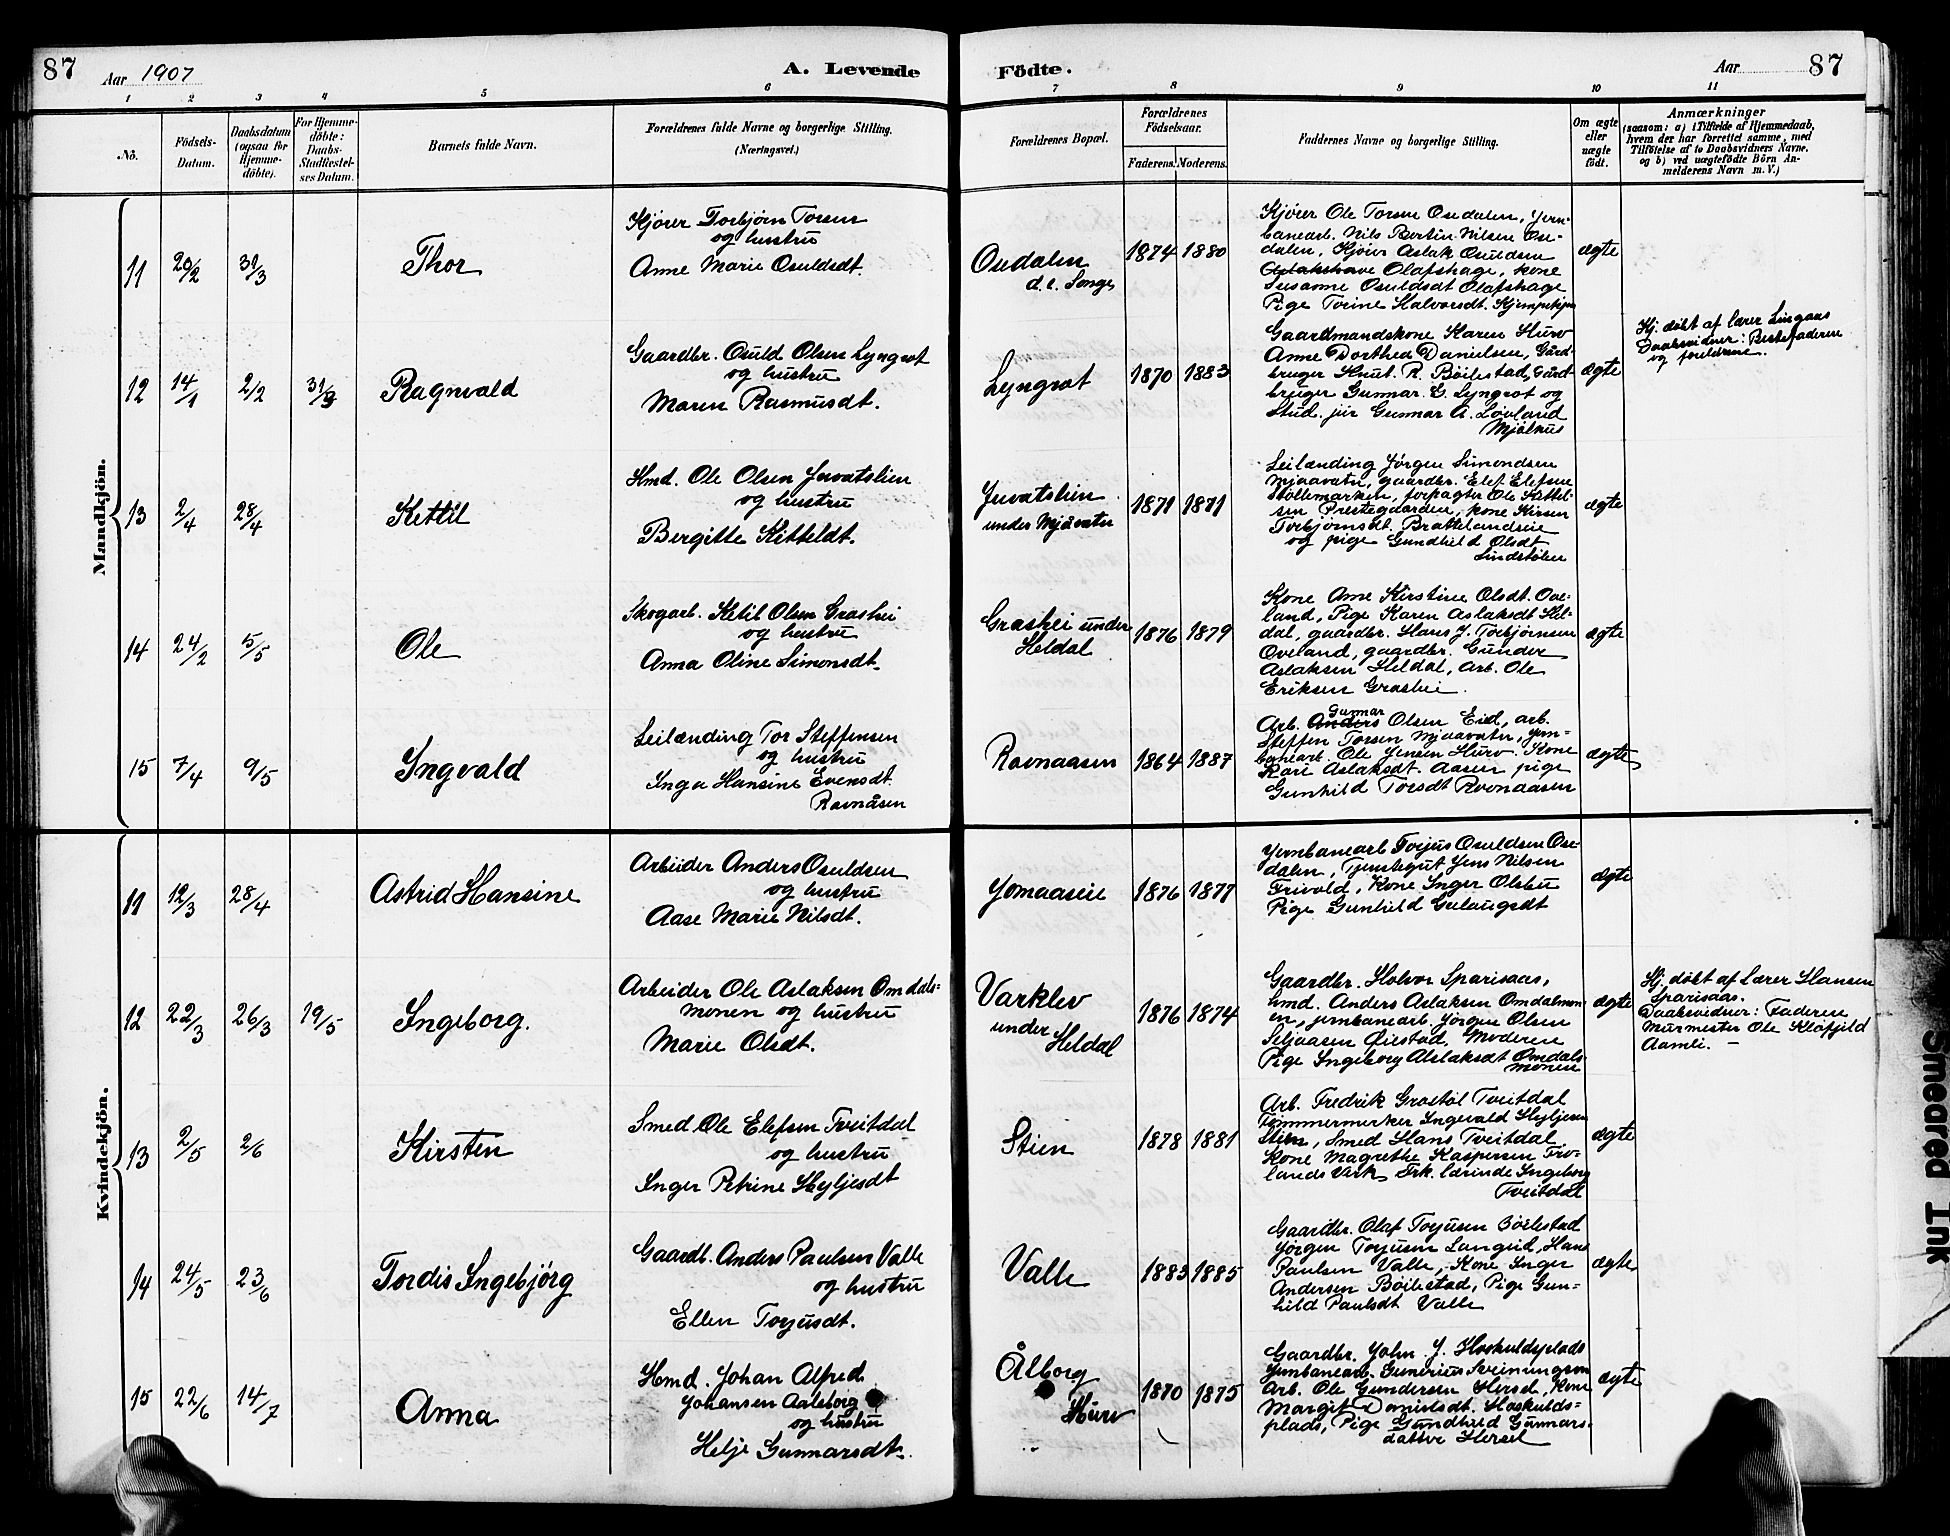 87
Aar 1907
A. Levende
Födte.
Aar
87
1 2 3 4 5 6 7 8 9 10 11
No.
Födsels-
Datum.
Daabsdatum
(ogsaa for
Hjemme-
döbte).
For Hjemme-
döbte:
Daabs-
Stadfæstel-
ses Datum.
Barnets fulde Navn.
Forældrenes fulde Navne og borgerlige Stilling.
(Næringsvei.)
Forældrenes Bopæl.
Forældrenes
Födselsaar.
Faderens. Moderens.
Faddernes Navne og borgerlige Stilling.
Om ægte
eller
uægte
födt.
Anmærkninger
(saasom: a) i Tilfælde af Hjemmedaab,
hvem der har forrettet samme, med
Tilföielse af to Daabsvidners Navne,
og b) ved uægtefödte Börn An-
melderens Navn m. V.)
Mandkjön.
11 20/2 31/3
Thor
Kjörer Torbjörn Torsen
og hustru
Anne Marie Osuldsdt.
Osedalen
d. e. Songe
1874 1880
Kjörer Ole Torsen Osedalen, Jern-
banearb. Nils Bertin Nilsen Ose-
dalen, Kjörer Aslak Osuldsen
Olafshage, kone
Susanne Osuldsdt Olafshage
Pige Torine Halvorsdt.
ægte
12 14/1 2/2 31/3
Ragnvald
Gaardbr. Osuld Olsen Lyngrot
og hustru
Maren Rasmusdt.
Lyngrot
1870 1883
Gaardmandskone Karen Hurv
Anne Dorthea Danielsen, Gård-
bruger Knut R. Böilestad, Gård-
bruger Gunnar E. Lyngrot og
Stud. jur Gunnar A. Lövland
Mjålnus
ægte
Hj. döbt af lærer Lingaas
Daabsvidner: Bestefaderen
og foreldrene.
13 2/4 28/4
Kettil
Hmd. Ole Olsen Juvatslien
og hustru
Bergitte Kitteldt.
Juvatslien
under Mjåvatn
1871 1871
Leilænding Jörgen Simondsen
Mjaavatn, gaardbr. Elef Elefsen
Stöllemarken, forpagter Ole Kittel-
sen Prestegaarden, kone Kirsen
Torbjörnsdt. Brattelandseie
og pige Gundhild Olsdt
Lindstölen
ægte
14 24/2 5/5
Ole
Skogarb. Ketil Olsen Grashei
og hustru
Anna Oline Simonsdt.
Grashei under
Heldal
1876 1879
Kone Ane Kirstine Olsdt. Ove-
land, Pige Karen Aslaksdt Hel-
dal, gaardbr. Hans J. Torbjörnsen
Oveland, gaardbr. Gunder
Aslaksen Heldal, arb. Ole
Eriksen Grashei.
ægte
15 7/4 9/5
Ingvald
Leilænding Tor Steffensen
og hustru
Inga Hansine Evensdt.
Ravnåsen
Ravnaasen
1864 1887
Gunnar
Arb. Anders Olsen Eid, arb.
Steffen Torsen Mjaavatn, jern-
banearb. Ole Jensen Hurv. Kone
Kari Aslaksdt. Aasen pige
Gunhild Torsdt Ravnaasen
ægte
Kvindekjön.
11 12/3 28/4
Astrid Hansine
Arbeider Anders Osuldsen
og hustru
Aase Marie Nilsdt.
Jomaaseie
1876 1877
Jernbanearb Torjus Osuldsen Ose-
dalen, Tjenstegut Jens Nilsen
Frivold, Kone Inger Olsbu
Pige Gunhild Gulaugsdt
ægte
12 22/3 26/3 19/5
Ingeborg.
Arbeider Ole Aslaksen Omdals-
monen og hustru
Marie Olsdt.
Varklev
under
Heldal
1876 1874
Gaardbr. Halvor Sparisaas,
hmd. Anders Aslaksen Omdalmon-
en, jernbanearb. Jörgen Olsen
Seljaasen Öiestad, Moderen
Pige Ingeborg Aslaksdt Omdals-
monen
ægte
Hj. döbt af Lærer Hansen
Sparisaas.
Daabsvidner: Faderen
Murmester Ole Klöfjeld
Aamli. —
13 2/5 2/6
Kirsten
Smed Ole Elefsen Tveitdal
og hustru
Inger Petrine Hyljesdt
Stien
1878 1881
Arb. Fredrik Grastöl Tveitdal
Tömmermerker Ingevald Hyljesen
Stien, Smed Hans Tveitdal
Kone Magrethe Kaspersen Fro-
lands Værk Frk. lærinde Ingeborg
Tveitdal
ægte
14 24/5 23/6
Tordis Ingebjörg
Gaardb. Anders Paulsen Valle
og hustru
Ellen Torjusdt.
Valle
1883 1885
Gaardbr. Olaf Torjusen Böilestad
Jörgen Torjusen Langeid, Hans
Paulsen Valle, Kone Inger
Andersen Böilestad, Pige Gun-
hild Paulsdt Valle
ægte
15 22/6 14/7
Anna
Hmd. Johan Alfred
Johansen Aalborg
og hustru
Helje Gunnarsdt.
Ålborg
Hurv
1870 1875
Gaardbr. John J. Hoskuldsplads
Jernbanearb. Gunerius Sveinungsen
Arb. Ole Gundersen Hersel, Kone
Margit Hoskulds-
plads, Pige Gundhild Gunnars-
datter Hersel
ægte
Smeared Ink